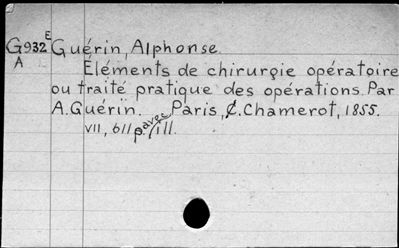 G932 E Guérin, Alphonse.
A Éléments de chirurgie opératoire
ou traité pratique des opérations. Par
A. Guérin. Paris, C. Chamerot, 1855.
VII, 611 p. avec ill.